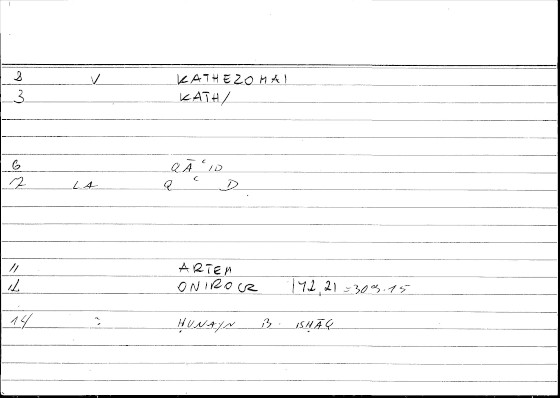 2 V KATHEZOMAI
3 KATH/
6 QĀʿID
7 LA Q ʿ D
11 ARTEM
12 ONIROCR 172,21 = 309.15
14 = ḤUNAYN B. ISḤĀQ